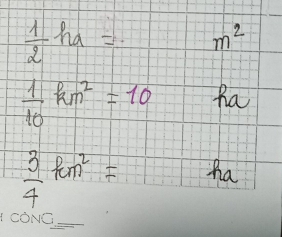 1/2 ha = m²
1/10 km² = 10 ha
3/4 km² = ha
CÔNG